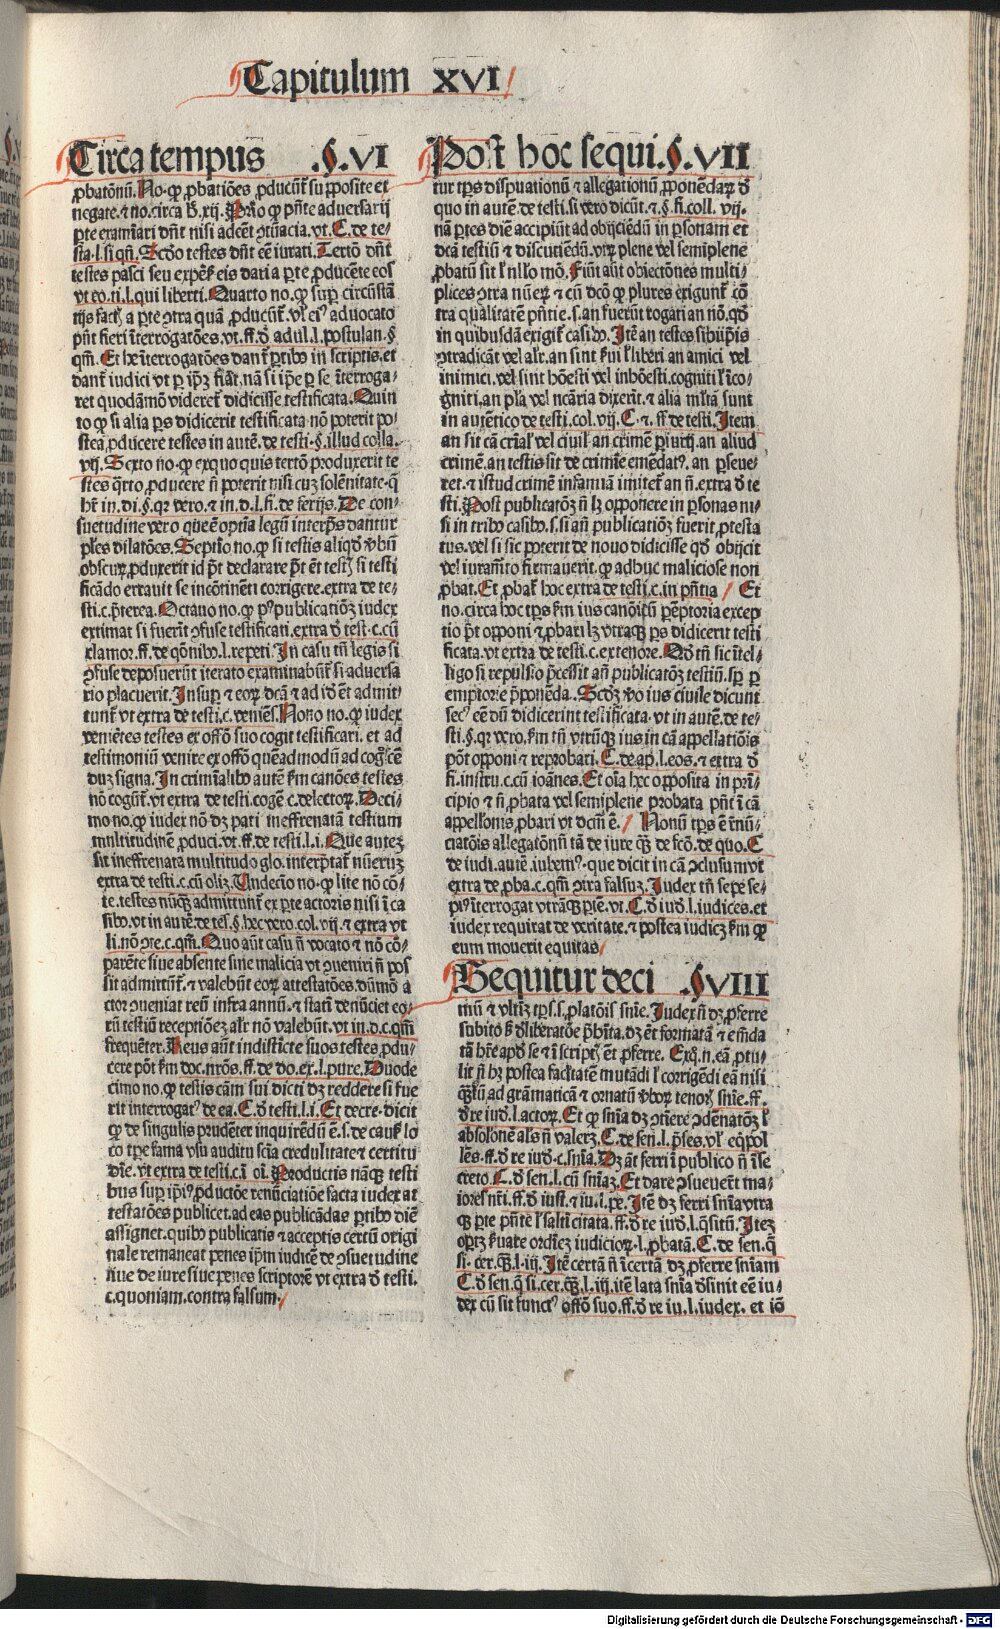 Capitulum XVI
Circa tempus .§.VI
ꝓbatōnū. No. ꝙ ꝓbatiōes ꝓducūt̄ su ꝑposite et
negate. ⁊ no. circa h̄.xij. Prīo ꝙ p̄nte adversarij
ꝑte examīari dn̄t nisi adcēt ꝯtūacia. vt. C. de te-
sta. l. si qn̄. Scd̄o testes dn̄t eē iurati. Tertō dn̄t
testes pasci seu expēs̄ eis dari a ꝑte ꝓducēte eos
vt eo. ti. l. qui liberti. Quarto no. ꝙ suꝑ circūstā
tijs factꝭ a ꝑte ꝯtra quā ꝓducūt̄. vl̓ ei⁹ aduocato
pn̄t fieri īterrogatōes. vt. ff. d̄ adul. l. postulan. §
qm̄. Et he īterrogatōes dant̄ ꝑtibꝰ in scriptis. et
dant̄ iudici vt ꝑ ip̄ꝫ fiāt. nā si ip̄e ꝑ se īterroga-
ret quodāmō videret̄ didicisse testificata. Quin
to ꝙ si alia ꝑs didicerit testificata nō poterit po-
stea ꝓducere testes in autē. de testi. §. illud colla.
vij. Sexto no. ꝙ exquo quis tertō produxerit te
stes q̄rto ꝓducere n̄ poterit nisi cuꝫ solēnitate. q̄
hr̄ in. di. §. qꝛ vero. ⁊ in. d. l. fi. de ferijs. De con-
suetudine vero que ē optīa legū interp̄s dantur
ples dilatōes. Septīo no. ꝙ si testis aliqd̄ v̄bū
obscuꝝ ꝓduxerit id p̄t declarare p̄t ēt testꝭ si testi
ficādo errauit se incōtinēti corrigere. extra de te-
sti. c. p̄terea. Octauo no. ꝙ pꝰ publicatiōꝫ iudex
extimat si fuerīt ꝯfuse testificati. extra d̄ test. c. cū
clamor. ff. de q̄onibꝰ. l. repeti. In casu tn̄ legis si
ꝯfuse deposuerūt iterato examinabūt̄ si aduersa
rio placuerit. Insuꝑ ⁊ eoꝝ dcā ⁊ ad id ēt admit-
tunt̄ vt extra de testi. c. veniēs. Nono no. ꝙ iudex
veniētes testes ex offō suo cogit testificari. et ad
testimoniū venire ex offō quēadmodū ad cogscē
duꝫ signa. In crimīalibꝰ autē ẜm canōes testes
nō cogūt̄. vt extra de testi. cogē. c. delectoꝝ. Deci-
mo no. ꝙ iudex nō dꝫ pati ineffrenatā testium
multitudinē ꝓduci. vt. ff. de testi. l. i. Que autez
sit ineffrenata multitudo glo. interp̄tat̄ nūeruꝫ
extra de testi. c. cū oliꝫ. Undecīo no. ꝙ lite nō cō-
te. testes nūqꝫ admittunt̄ ex ꝑte actoris nisi ī ca
sibꝰ. vt in autē. de tes̄. §. hec vero. col. vij. ⁊ extra vt
li. nō ꝯte. c. qm̄. Quo aūt casu n̄ vocato ⁊ nō cō-
parēte siue absente sine malicia vt ꝯueniri n̄ pos
sit admittūt̄. ⁊ valebūt eoꝝ attestatōes. dūmō a
ctor ꝯueniat reū infra annū. ⁊ statī denūciet eo-
rū testiū receptiōeꝫ alr̄ nō valebūt. vt in. d. c. qm̄
frequēter. Reus aūt indistīcte suos testes ꝓdu-
cere pōt ẜm doc. nrōs. ff. de do. ex. l. pure. Duode
cimo no. ꝙ testis cām sui dicti dꝫ reddere si fue
rit interrogatꝰ de ea. C. d̄ testi. l. i. Et decre. dicit
ꝙ de singulis prudēter inquirēdū ē. s. de caus̄ lo
co tꝑe fama visu auditu scīa credulitate ⁊ certitu
dīe. vt extra de testi. c. i. oi. Productis nāqꝫ testi
bus suꝑ ip̄iꝰ ꝓductōe renūciatiōe facta iudex at
testatōes publicet. ad eas publicādas ꝑtibꝰ diē
assignet. quibꝰ publicatis ⁊ acceptis certū origi
nale remaneat penes ip̄m iudicē de ꝯsuetudine
siue de iure siue penes scriptorē vt extra d̄ testi.
c. quoniam. contra falsum.
Post hoc sequi. §.VII
tur tp̄s disputationū ⁊ allegationū ꝓponēdaꝝ d̄
quo in autē. de testi. si vero dicūt. ⁊. §. fi. coll. vij.
nā ꝑtes diē accipiūt ad obijciēdū in ꝑsonam et
dcā testiū ⁊ discutiēdū. vtꝝ plene vel semiplene
ꝓbatū sit l̓ nllo mō. Fiūt aūt obiectōnes multi-
plices ꝯtra nūeꝝ ⁊ cū dcō ꝙ plures exigunt̄ cō
tra qualitatē pn̄tie. s. an fuerūt rogati an nō. qd̄
in quibusdā exigit̄ casibꝰ. Itē an testes sibiip̄is
ꝯtradicāt vel alr̄. an sint ẜui l̓ liberi an amici vel
inimici. vel sint hōesti vel inhōesti. cogniti l̓ īco-
gniti. an pl̄a vel ncāria dixerīt. ⁊ alia ml̄ta sunt
in autētico de testi. col. vij. C. ⁊. ff. de testi. Item
an sit cā crīal̓ vel ciuil̓ an crimē ꝑiurij. an aliud
crimē. an testis sit de crimīe emēdatꝰ. an ꝑseue-
ret. ⁊ istud crimē infamiā imitet̄ an n̄. extra d̄ te
sti. Post publicatōꝫ n̄ lꝫ opponere in ꝑsonas ni-
si in tribꝰ casibꝰ. s. si an̄ publicatiōꝫ fuerit ꝓtesta
tus. vel si sic poterit de nouo didicisse qd̄ obijcit
vel iuramēto firmauerit. ꝙ adhuc maliciose non
ꝓbat. Et ꝓbat̄ hoc extra de testi. c. in pn̄tia Et
no. circa hoc tp̄s ẜm ius canōicū ꝑēptoria excep
tio p̄t opponi ⁊ ꝓbari lꝫ vtraqꝫ ꝑs didicerit testi
ficata. vt extra de testi. c. ex tenore. Qd̄ tn̄ sic ītel-
ligo si repulsio p̄cessit an̄ publicatōꝫ testiū. suꝑ ꝑ
emptorie ꝓponēda. Scd̄ꝫ v̄o ius ciuile dicunt
secꝰ eē dū didicerint testificata. vt in autē. de te-
sti. §. qꝛ vero. ẜm tn̄ vtrūqꝫ ius in cā appellatiōis
pōt opponi ⁊ reprobari. C. de ap. l. eos. ⁊ extra d̄
fi. instru. c. cū ioānes. Et oīa hec opposita in prī-
cipio ⁊ n̄ ꝓbata vel semiplene probata pn̄t ī cā
appellonis ꝓbari vt dcm̄ ē. Nonū tp̄s ē īnū-
ciatōis allegatōnū tā de iure qꝫ de fcō. de quo. C
de iudi. autē. iubemꝰ. que dicit in cā ꝯclusum vt
extra de ꝓba. c. qm̄ ꝯtra falsuꝫ. Iudex tn̄ sepe se-
piꝰ īterrogat vtrāqꝫ ꝑtē. vt. C. d̄ iud̄. l. iudices. et
iudex requirat de veritate. ⁊ postea iudicꝫ ẜm ꝙ
eum mouerit equitas
Sequitur deci §VIII
mū ⁊ vltīꝫ tp̄s. s. ꝓlatōis sn̄ie. Iudex n̄ dꝫ ꝓferre
subito ẜ d̄liberatōe p̄hita. dꝫ ēt formatā ⁊ emēda
tā hr̄e apd̄ se ⁊ ī scriptꝭ et ꝓferre. Exqͦ. n. eā ꝓtu-
lit n̄ hꝫ postea facl̄tatē mutādi l̓ corrigēdi eā nisi
qꝫlū ad grāmaticā ⁊ ornatū v̄boꝝ tenorꝭ sn̄ie. ff.
d̄ re iud̄. l. actoꝝ. Et ꝙ sn̄ia dꝫ ꝯtīere ꝯdēnatōꝫ l̓
absolonē als̄ n̄ valeꝫ. C. de sen. l. p̄ses. vl̓ eqͥpol
lēs. ff. d̄ re iud̄. c. sn̄ia. Dꝫ āt ferri ī publico n̄ ī se
creto. C. d̄ sen. l. cū sn̄iaꝫ. Et dare ꝯsueuerūt ma-
iores nr̄i. ff. d̄ iust. ⁊ iu. l. pe. Itē dꝫ ferri sn̄ia vtra
qꝫ ꝑte pn̄te l̓ saltī citata. ff. d̄ re iud̄. l. q̄situ. Iteꝫ
oꝑtꝫ ẜuate ordīeꝫ iudicioꝝ. l. ꝓbatā. C. de sen. q̄
si. cer. qꝫ. l. iij. Itē certā n̄ īcertā dꝫ ꝓferre sn̄iam
C. d̄ sen. q̄ si. cer. qꝫ. l. iij. itē lata sn̄ia d̄sinit eē iu-
dex cū sit functꝰ offō suo. ff. d̄ re iu. l. iudex. et iō
Digitalisierung gefördert durch die Deutsche Forschungsgemeinschaft - DFG